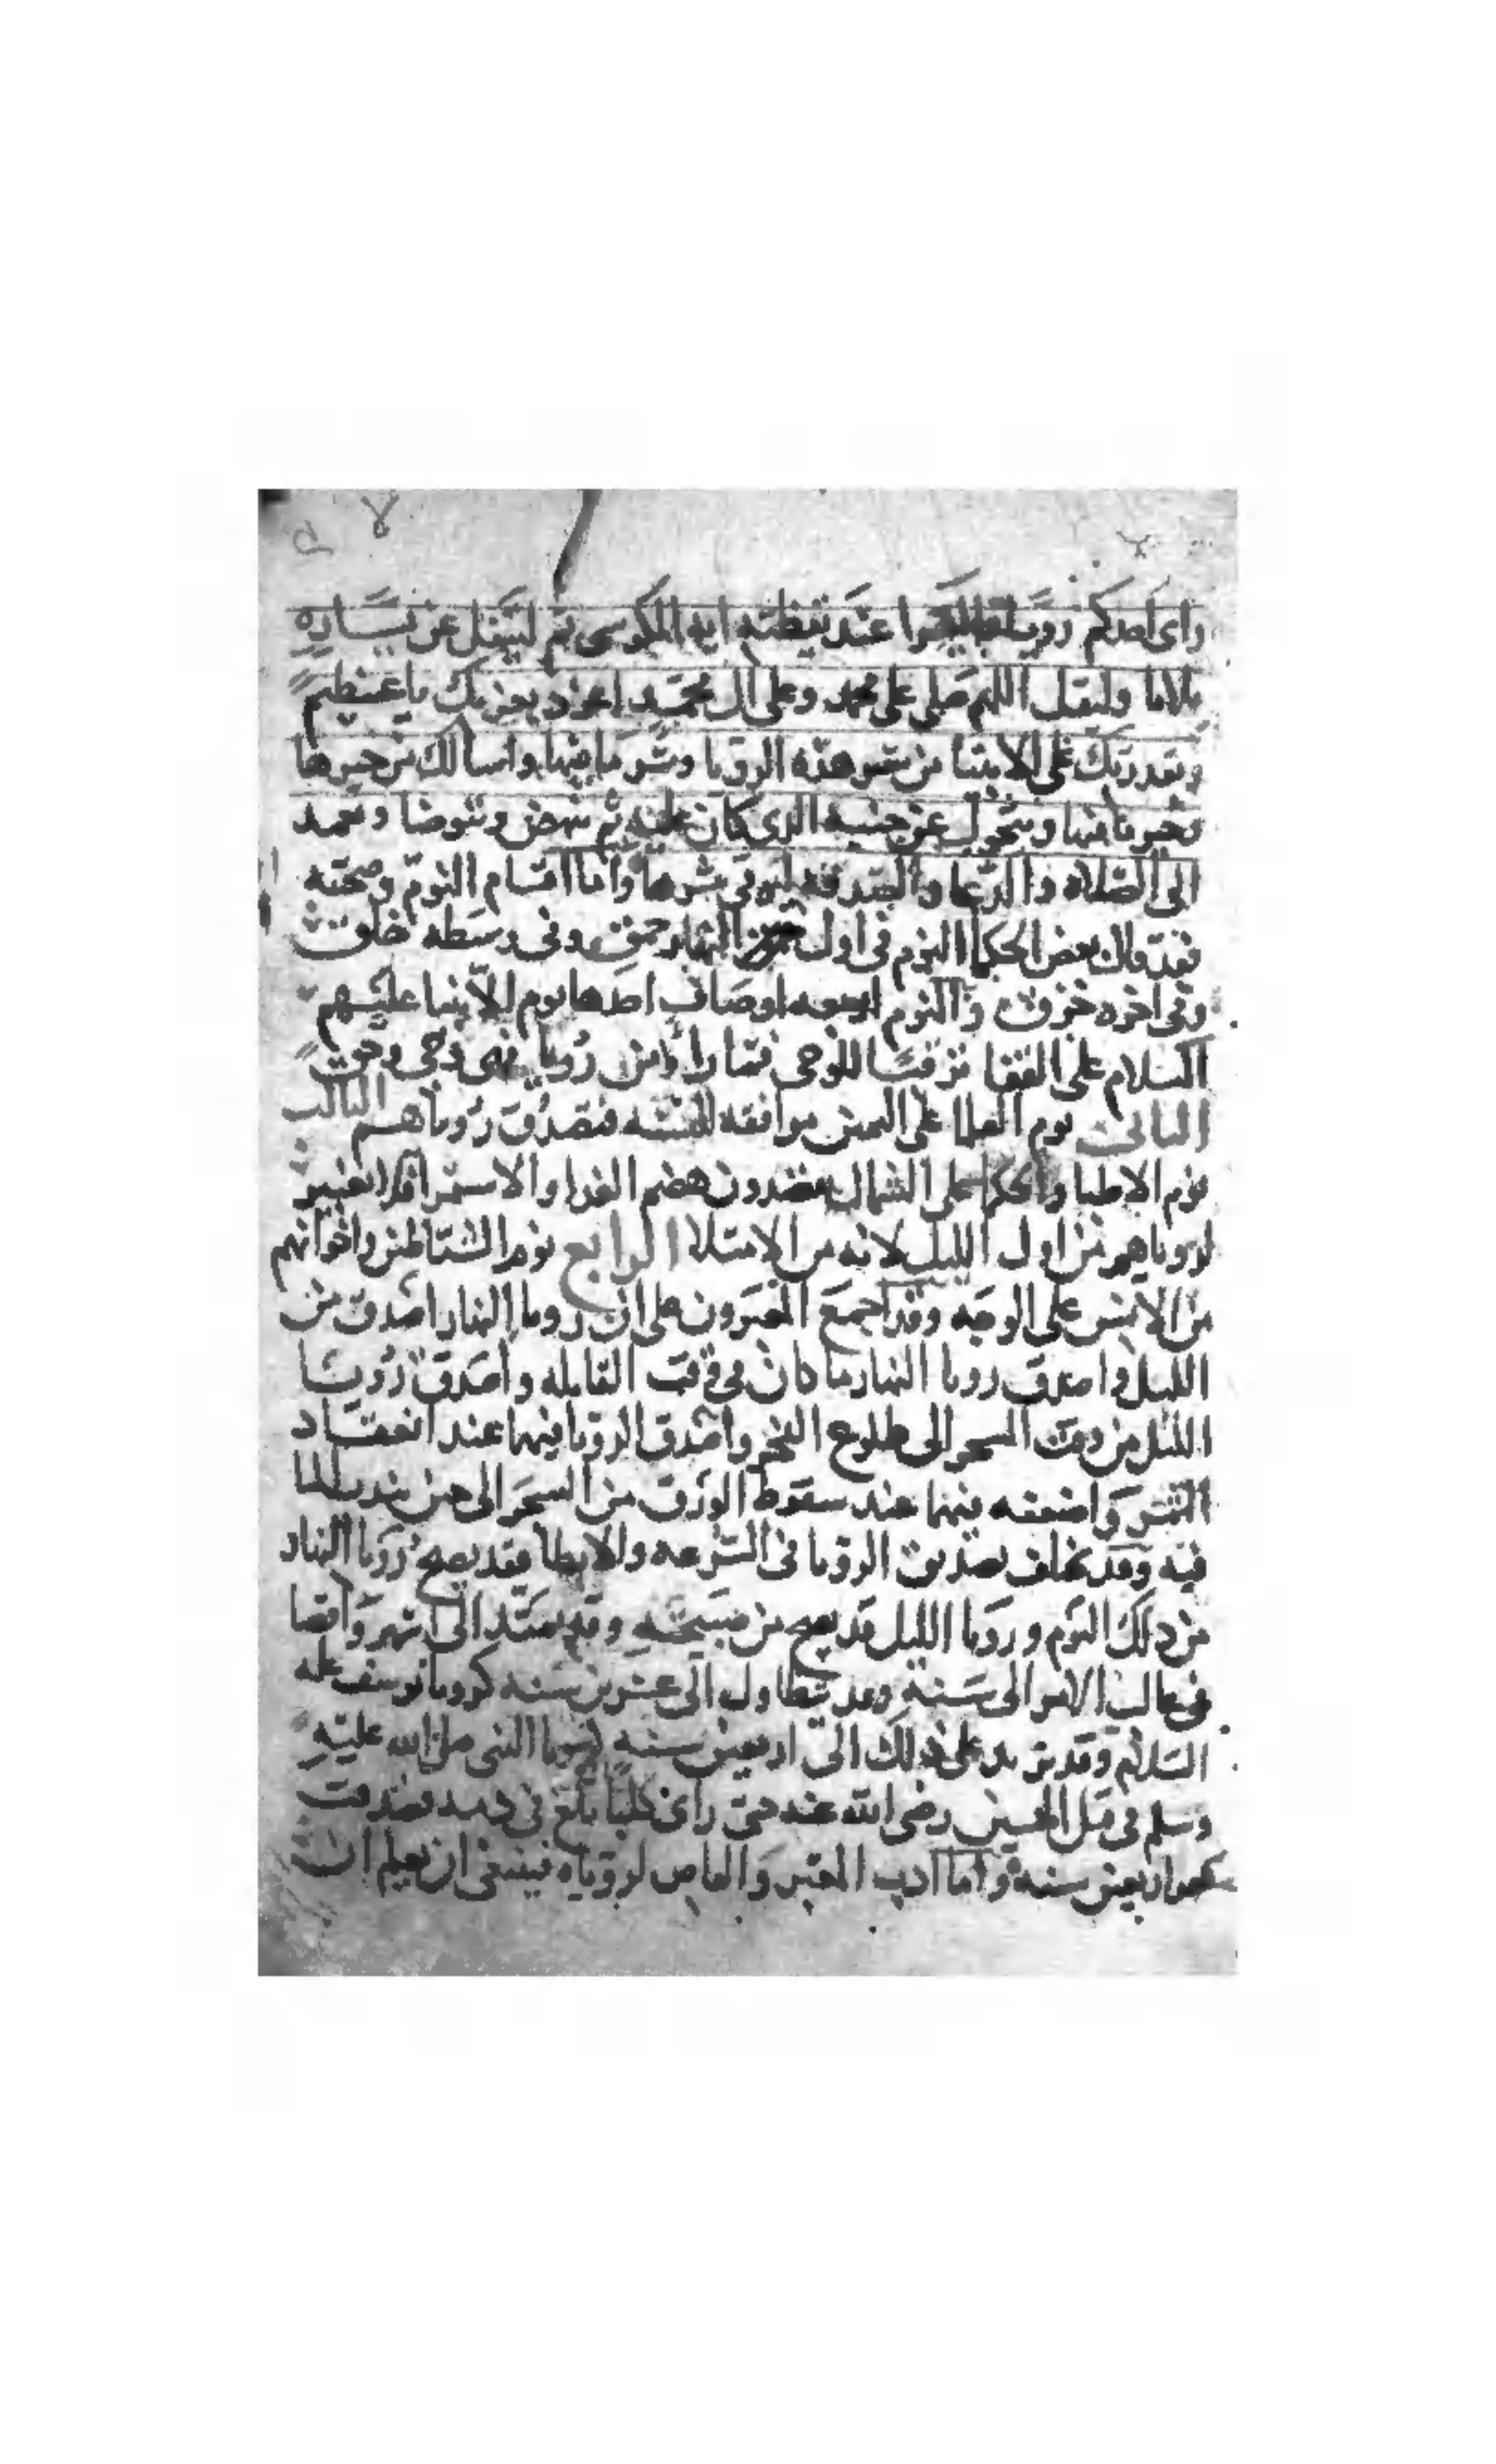 راى احدكم رويا فليقرا عند يقظته اية الكرسى ثم ليتفل عن يساره
ثلاثا وليقل اللهم صلى على محمد وعلى ال محمد اعوذ بعزتك يا عظيم
وبقدرتك على الاشيا من شر هذه الرويا وشر ما فيها واسالك من خيرها
وخير ما فيها ويتحول عن جنبه الذى كان عليه ثم ينهض ويتوضا ويعمد
الى الصلاه والدعا والصدقه ليوقى شرها واما اقسام النوم وصحته
فقد قال بعض الحكما النوم فى اول النهار حمق وفى وسطه خلق
وفى اخره خرق والنوم اربعه اوصاف احدها نوم الانبيا عليهم
السلام على القفا ترقبا للوحى فما راوا من رويا فهى وحى وحق
الثانى نوم العلما على اليمين موافقه للسنه فتصدق روياهم الثالث
نوم الاطبا والحكما على الشمال يقصدون هضم الغدا والاستمرا فلا تعبير
لروياهم من اول الليل لانه من الامتلا الرابع نوم الشياطين واخوانهم
من الانس على الوجه وقد اجمع المعبرون على ان رويا النهار اصدق من
الليل واصدق رويا النهار ما كان فى وقت القايله واصدق رويا
الليل من وقت السحر الى طلوع الفجر واصدق الرويا فيها عند انعقاد
الثمر واضعفه فيهما عند سقوط الورق من السحر الى حين يندب الما
فيه وقد تخلف تصديق الرويا فى السرعه والابطا فقد يصح رويا النهار
من ذلك اليوم ورويا الليل قد يصح من صبيحته وقد يمتد الى شهر واقصا
فى غالب الامر الى سنة وقد يتطاول الى عشرين سنه كرويا يوسف عليه
السلام وقد يزيد على ذلك الى اربعين سنه لرويا النبى صلى الله عليه
وسلم فى قتل الحسين رضى الله عنه حتى راى كلبا يلغ فى دمه فصدقت
بعد اربعين سنه واما ادب المعبر والقاص لروياه فينبغى ان يعلم ان